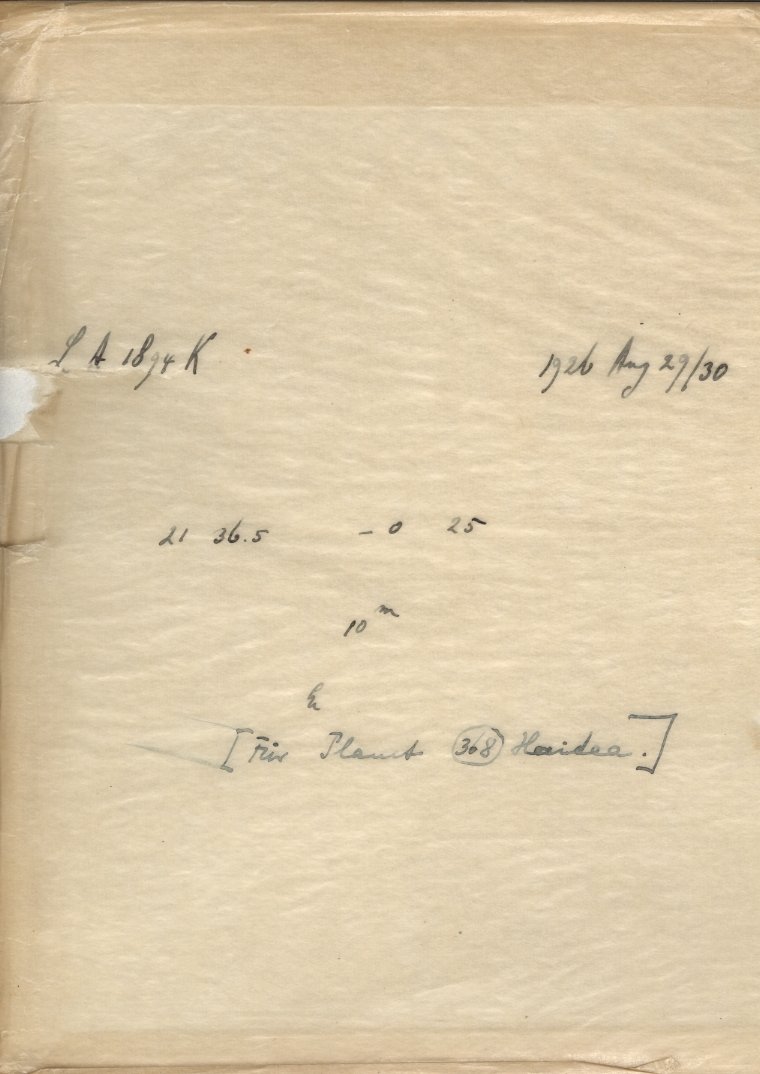 L A 1894 K 1926 Aug 29/30
21 36.5 - 0 25
10 m
[Für Planet 368 Haidea.]